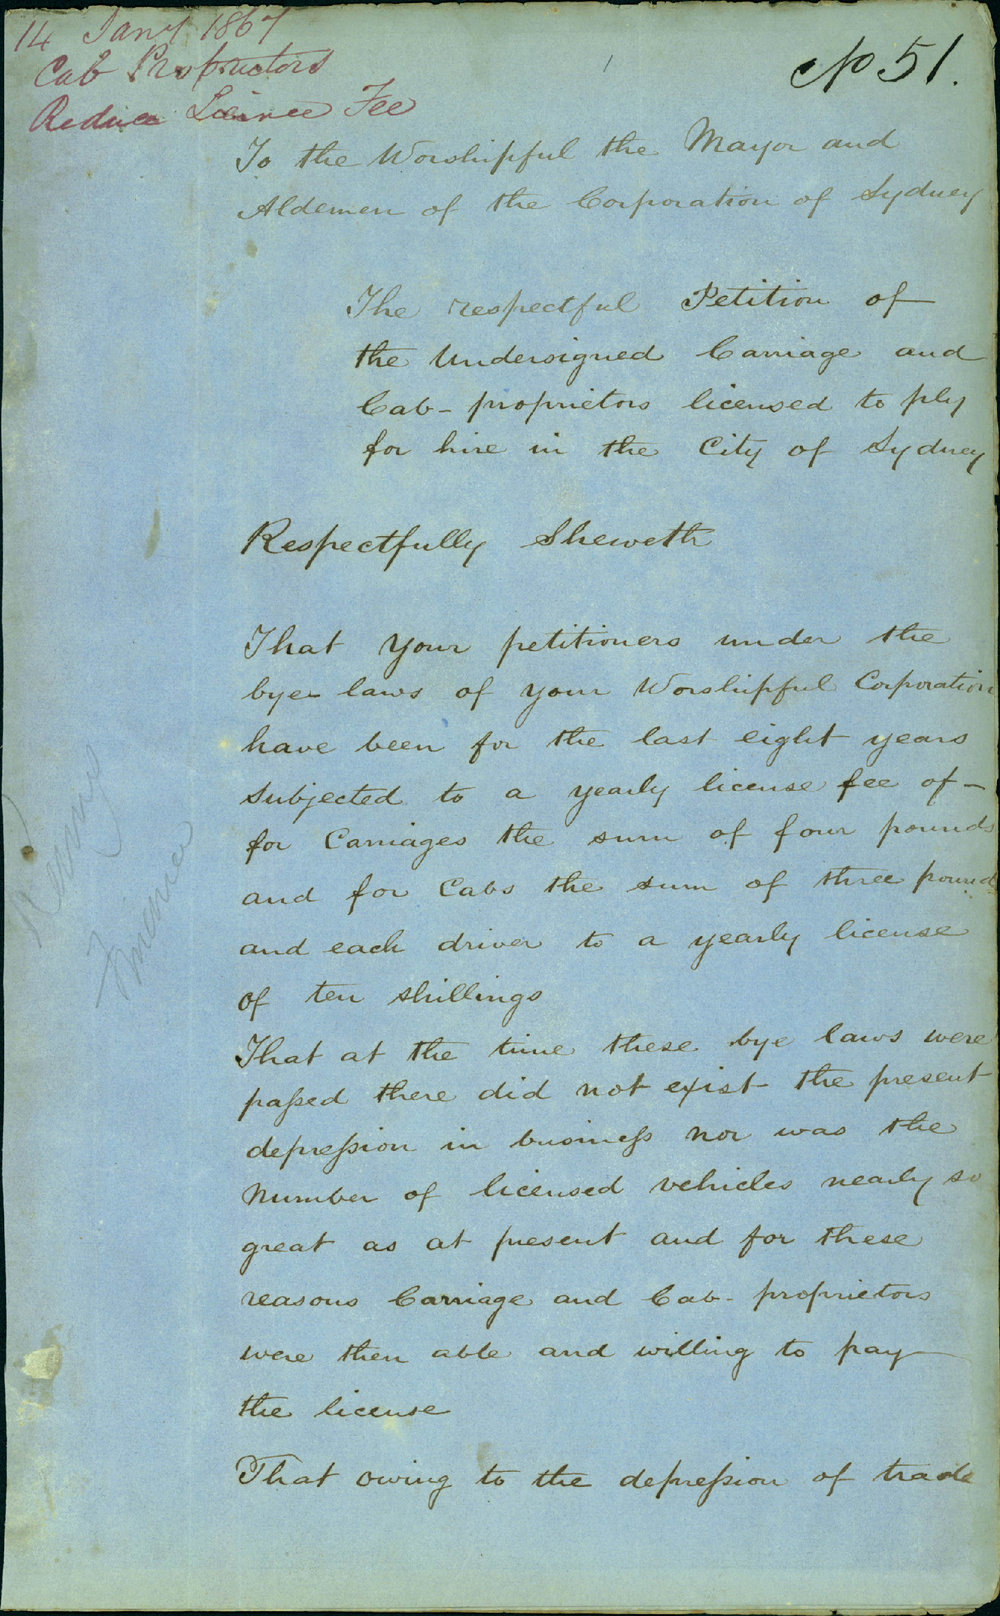 14 Jany 1867
Cab Proprietors
Reduce Licince Fee
1
No 51.
To the Worshipful the Mayor and
Aldemen of the Corporation of Sydney
The respectful Petition of
the Undersigned Carriage and
Cab-proprietors licensed to ply
for hire in the City of Sydney
Respectfully Sheweth
That your petitioners under the
bye laws of your Worshipful Corporation
have been for the last eight years
subjected to a yearly license fee of -
for Carriages the sum of four pounds
and for Cabs the sum of three pounds
and each driver to a yearly license
of ten shillings
That at the time these bye laws were
paſsed there did not exist the present
depreſsion in busineſs nor was the
number of licensed vehicles nearly so
great as at present and for these
reasons Carriage and Cab-proprietors
were then able and willing to pay
the license
That owing to the depreſsion of trade
Finance